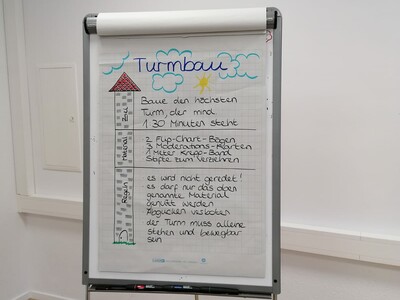 Turmbau
Ziel
Baue den höchsten
Turm, der mind.
1:30 Minuten steht
Material
2 Flip-Chart-Bögen
3 Moderations-Karten
1 Meter Krepp-Band
Stifte zum Verziehren
Regeln
es wird nicht geredet!
es darf nur das oben
genannte Material
genutzt werden
Abgucken verboten
der Turm muss alleine
stehen und bewegbar
sein